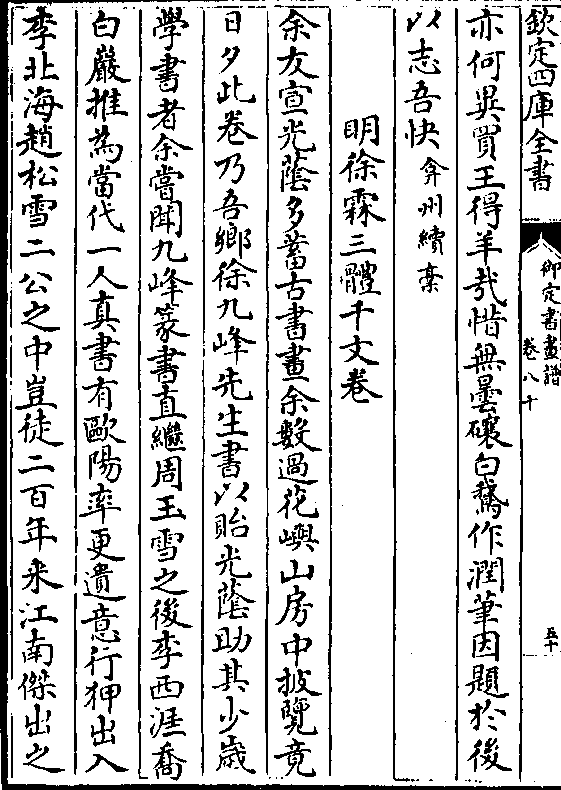 欽定四庫全書
御定書畫譜
卷八十
五十
亦何異買王得羊哉惜無曇礲白鵞作潤筆因題於後
以志吾快弇州續藁
明徐霖三體千文卷
余友宣光蔭多蓄古書畫余數過花嶼山房中披覽竟
日夕此卷乃吾鄉徐九峰先生書以貽光蔭助其少歲
學書者余嘗聞九峰篆書直繼周王雪之後李西涯喬
白巖推為當代一人真書有歐陽率更遺意行狎出入
李北海趙松雪二公之中豈徒二百年來江南傑出之